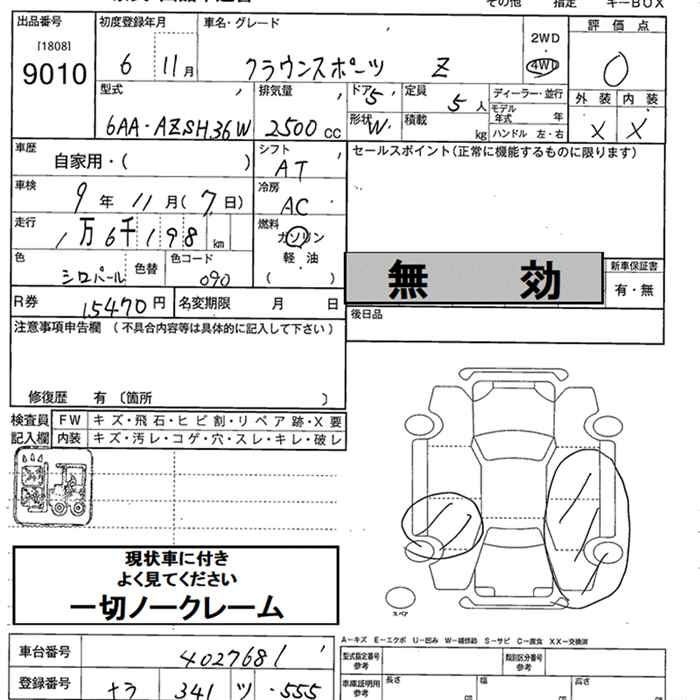 その他 指定 キーBOX
出品番号 初度登録年月 車名・グレード 2WD 評価点
[1808]
9010 6 11月 クラウンスポーツ Z 4WD 0
型式 排気量 ドア 5 定員 5人 ディーラー・並行 外装 内装
6AA・AZSH36W 2500cc 形状 W 積載 kg モデル年式 年 X X
ハンドル 左・右
車歴 自家用・( ) シフト AT セールスポイント(正常に機能するものに限ります)
車検 9年11月(7日) 冷房 AC
走行 1万6千198km 燃料 ガソリン
軽・油
( )
色 シロパール 色替 色コード 090
無効 新車保証書
有・無
R券 15470円 名変期限 月 日 後日品
注意事項申告欄 (不具合内容等は具体的に記入して下さい)
修復歴 有 〔箇所 〕
検査員 FW キズ・飛石・ヒビ割・リペア跡・X要
記入欄 内装 キズ・汚レ・コゲ・穴・スレ・キレ・破レ
現状車に付き
よく見てください
一切ノークレーム
スペア
A-キズ E-エクボ U-凹み W-補修跡 S-サビ C-腐食 XX-交換済
車台番号 4027681 型式指定番号 参考 類別区分番号 参考
登録番号 ナラ 341 ツ ・555 車庫証明用 参考 長さ 幅 高さ